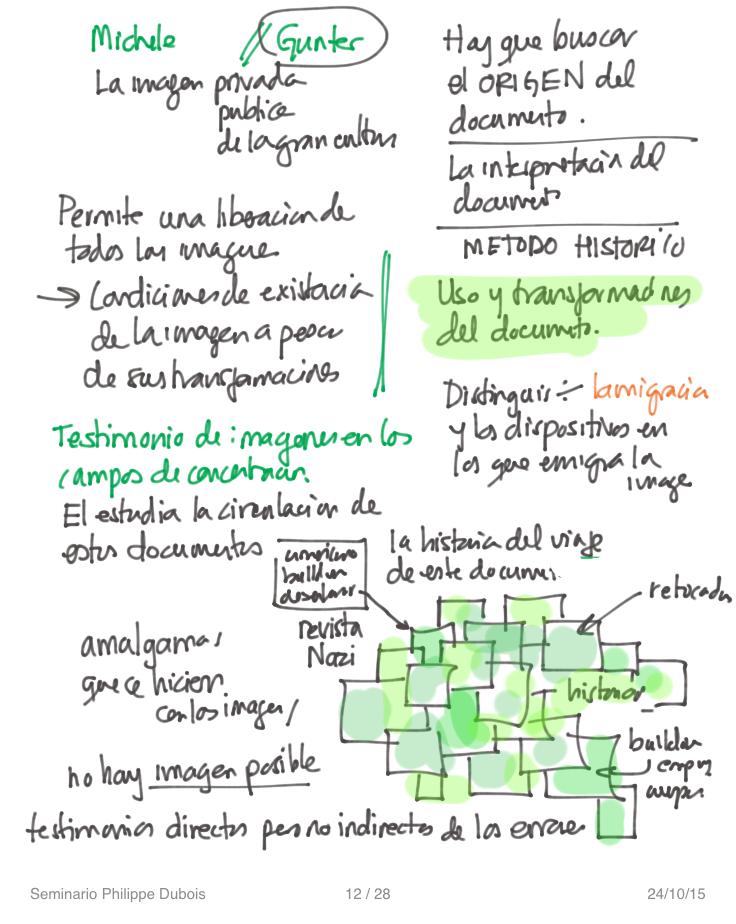 Michele // Gunter
La imagen privada
publica
de la gran cultura
Permite una liberacion de
todos las imagene
→ Condiciones de existacia
de la imagen a pesar
de sus transformaciones
Testimonio de imagenes en los
campos de concentracion.
El estudia la circulacion de
estos documentos
Hay que buscar
el ORIGEN del
documento.
La interpretación del
documento
METODO HISTORICO
Uso y transformaciones
del documento.
Distinguir ÷ la migracia
y los dispositivos en
los que emigra la
image
la historia del viaje
de este documen.
revista
Nazi
retocadas
amalgamas
que se hicien
con los imagen
historia
no hay imagen posible
testimonios directos pero no indirectos de los
Seminario Philippe Dubois
12 / 28
24/10/15